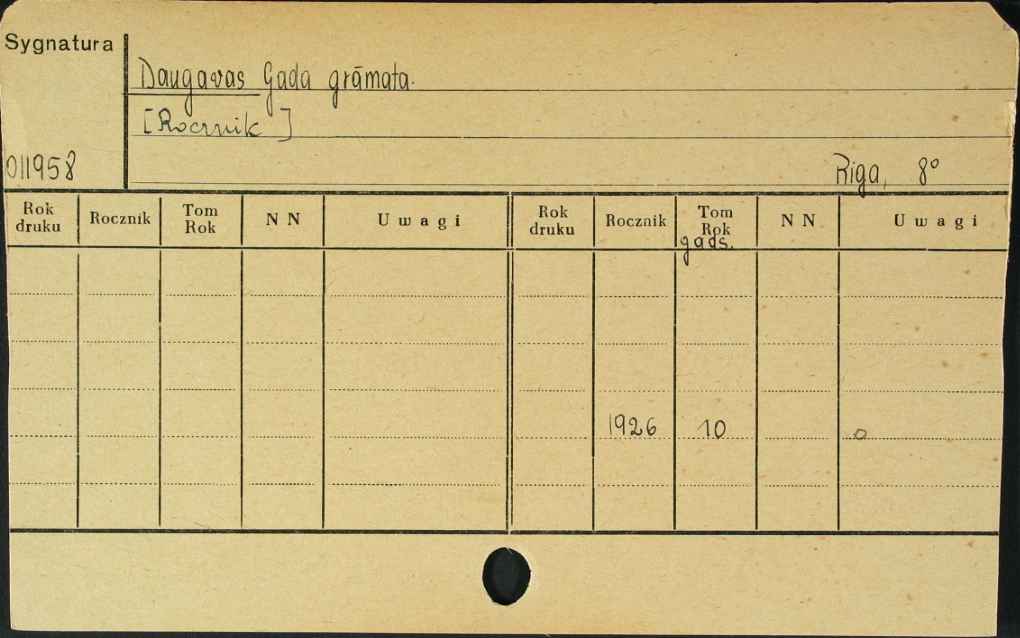 Sygnatura
Daugavas Gada grāmata.
[Rocznik]
011958
Riga, 8°
Rok druku Rocznik Tom Rok N N Uwagi Rok druku Rocznik Tom Rok N N Uwagi
gads.
1926 10 o